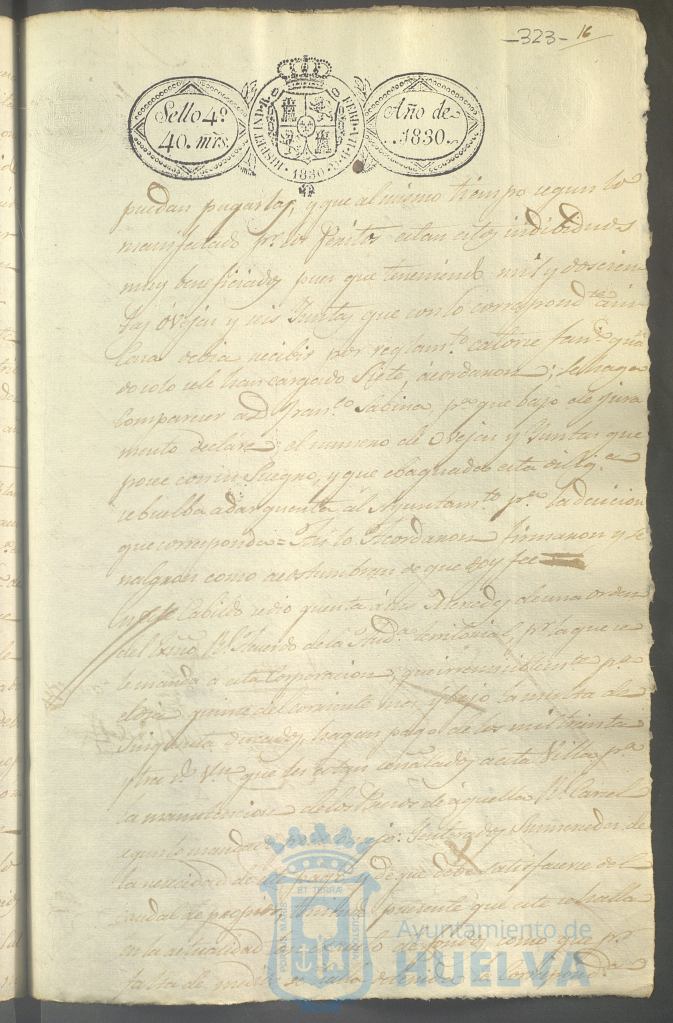 -323- 16
Sello 4º
40. mrs.
HISP. ET IND. R. FERD. VII. D. G. 1830
Año de
1830.
puedan pagarlas, y que al mismo tiempo segun lo
manifestado pr. los Peritos estan estos individuos
muy beneficiados pues que teneniendo mil y doscien
tas óvejas y seis Yuntas que con lo correspondte. á in
devia recibir por reglamto. catorce fans.
do solo se le han cargado Siete, acordaron; se haga
Comparecer a D. Franco. Sabina, pa. que bajo de jura
mento declare el numero de ovejas y Yuntas que
posee con su Suegro, y que ebaquada esta dilliga.
se buelba a dar quenta al Ayuntamto. pa. la decicion
que corresponda = Asi lo Acordaron firmaron y se
ñalaron como acostumbran de que doy fee
este Cabildo se dio quenta á sus Mercedes de una orden
del Exmo. Rl. Acuerdo de la Auda. territorial, pr. la que se
le manda a esta Corporacion, que irremisiblemte. pa.
el dia quince del corriente mes y bajo la multa de
cinquenta ducados, hagan pago de los mil treinta
rs. Vn. que les estan señalados a esta Villa pa.
la manutencion de los Presos de aquella Rl. Carcel
segun lo mandado
la necesidad de este pago y de que debe satisfacerse del
caudal de propios presente que este se halla
en la actualidad de fondos como que pr.
falta de medios
PORTUS MARIS ET TERRAE CUSTODIA
Ayuntamiento de
HUELVA